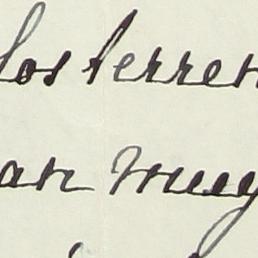 los terren
an muy